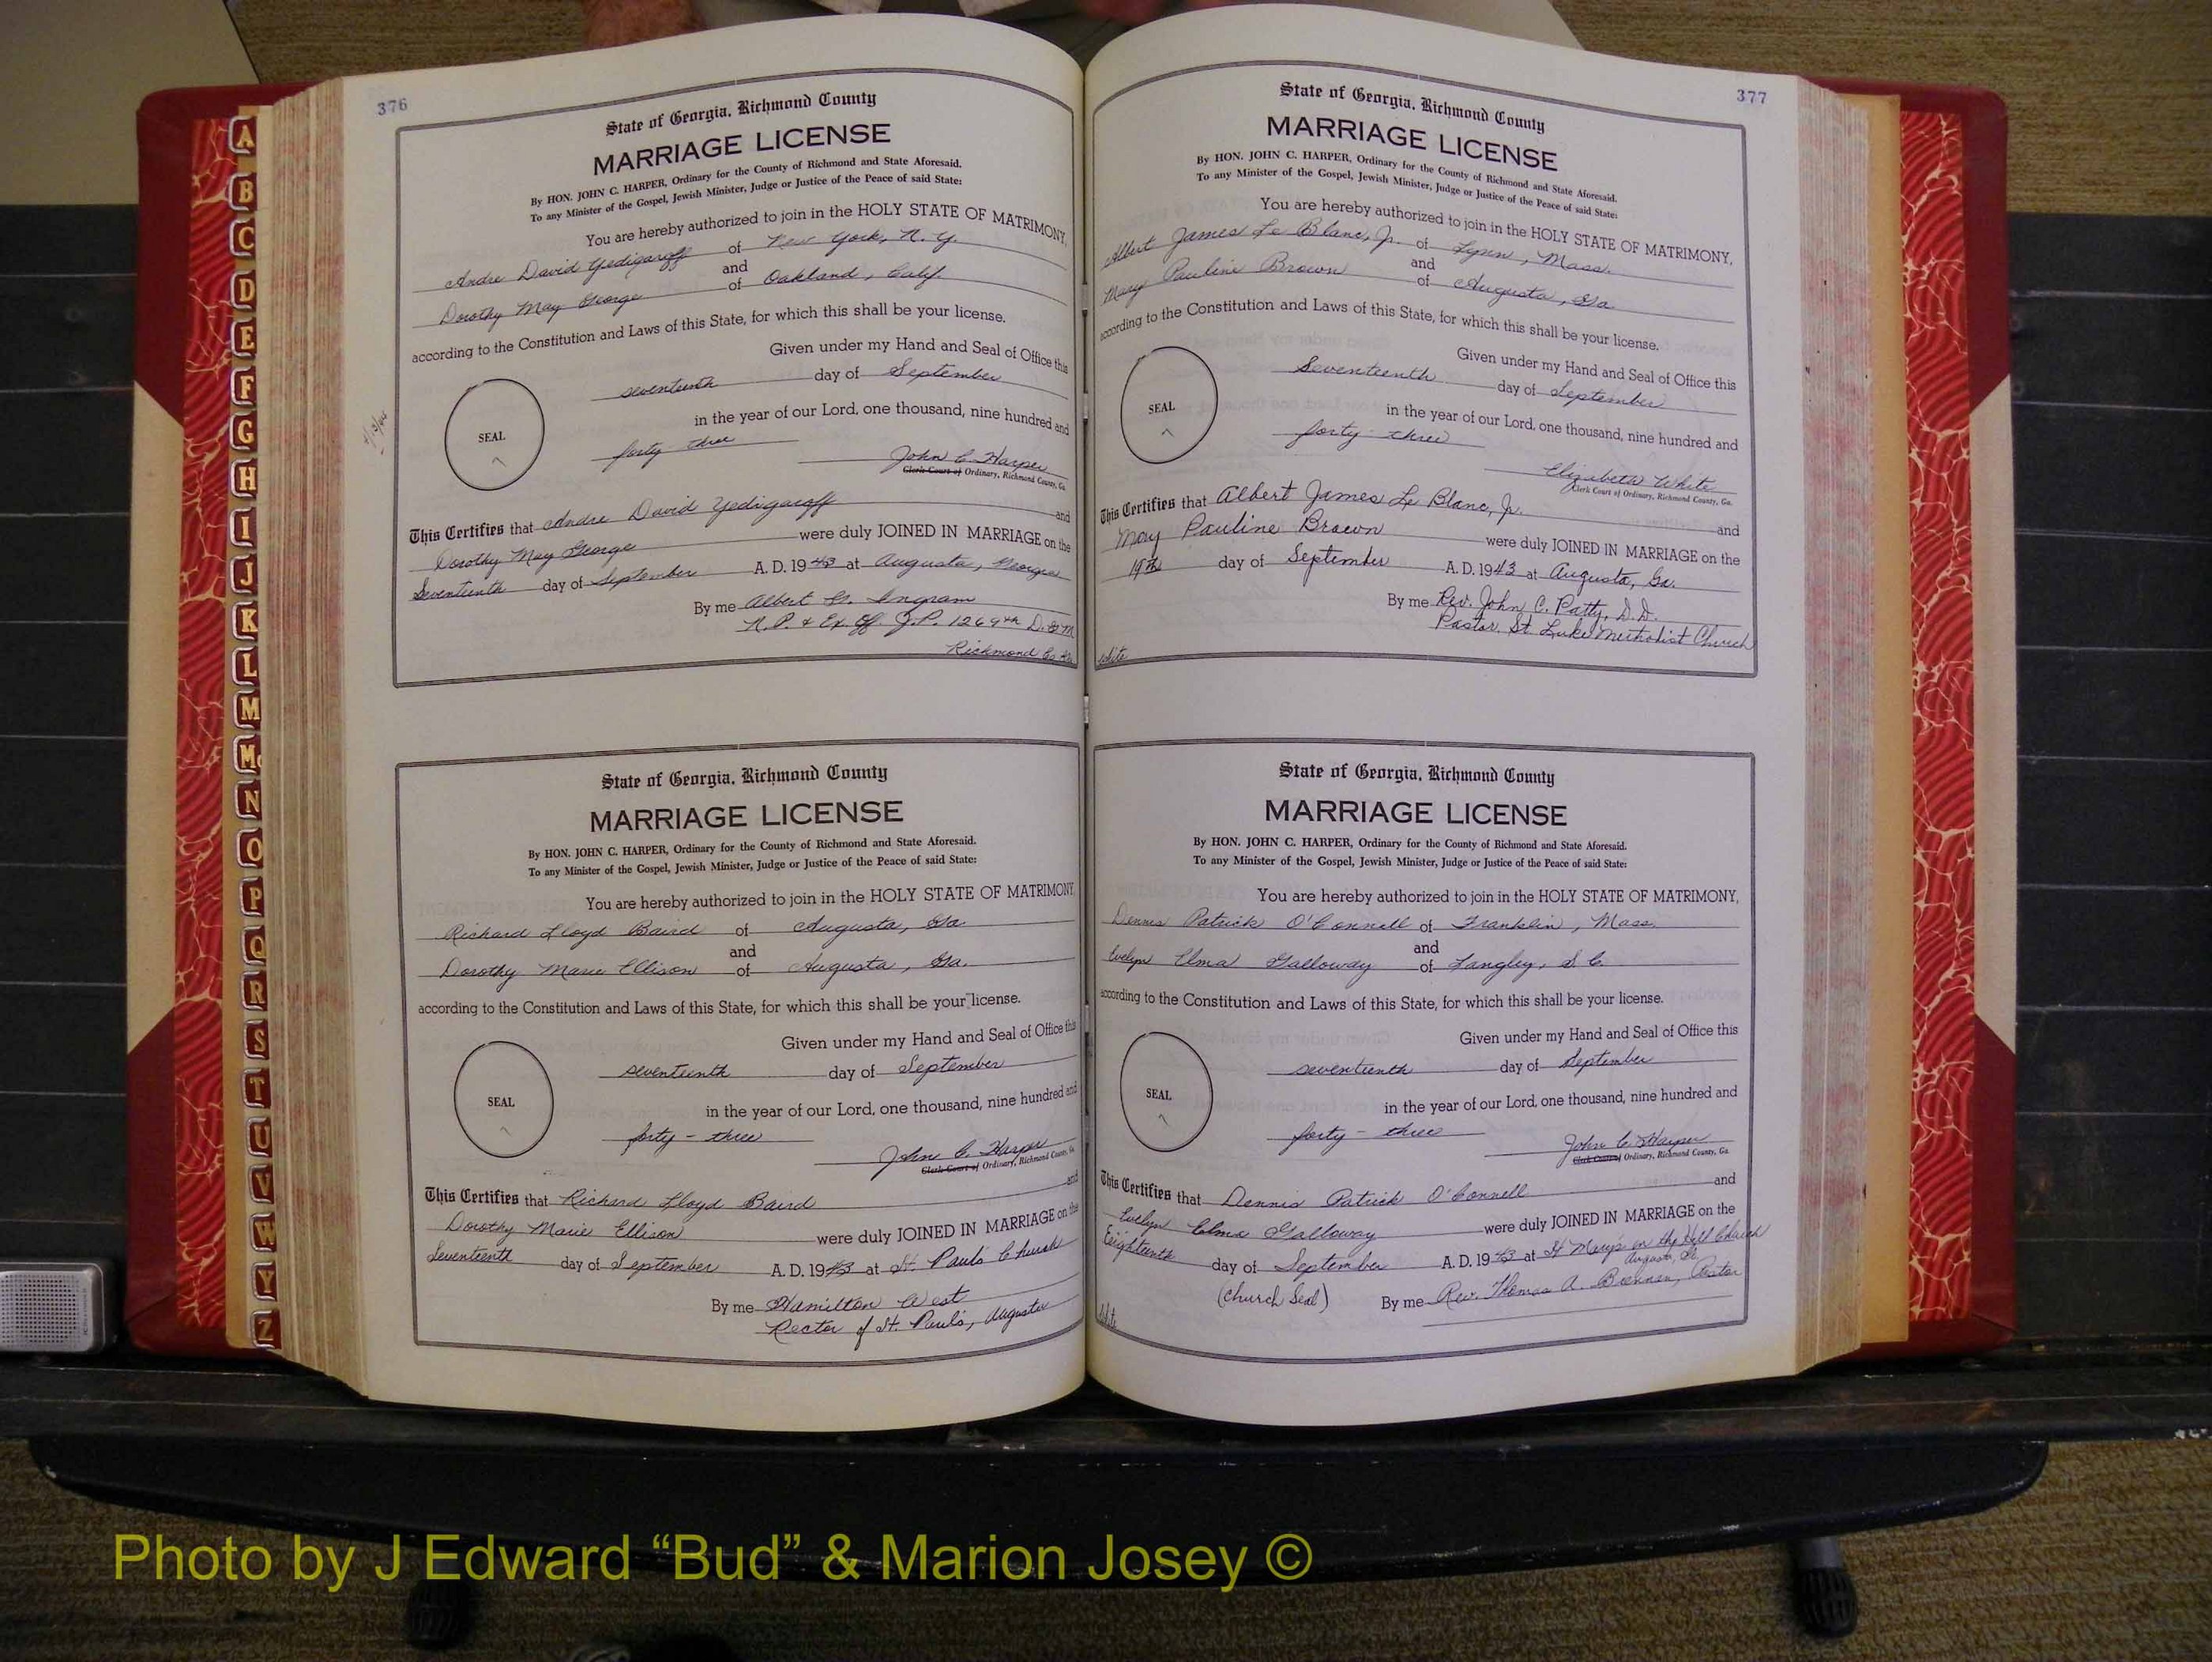 376
State of Georgia, Richmond County
MARRIAGE LICENSE
By HON. JOHN C. HARPER, Ordinary for the County of Richmond and State Aforesaid.
To any Minister of the Gospel, Jewish Minister, Judge or Justice of the Peace of said State:
You are hereby authorized to join in the HOLY STATE OF MATRIMONY,
Andre David Yedigaroff of New York, N. Y.
and
Dorothy May George of Oakland, Calif.
according to the Constitution and Laws of this State, for which this shall be your license.
Given under my Hand and Seal of Office this
seventeenth day of September
in the year of our Lord, one thousand, nine hundred and
SEAL
forty three
John C. Harper
Clerk Court of Ordinary, Richmond County, Ga.
This Certifies that Andre David Yedigaroff and
Dorothy May George were duly JOINED IN MARRIAGE on the
Seventeenth day of September A. D. 1943 at Augusta, Georgia
By me Albert G. Ingram
N. P. & Ex. Off. J. P. 1269th D. G M
Richmond Co Ga
State of Georgia, Richmond County
MARRIAGE LICENSE
By HON. JOHN C. HARPER, Ordinary for the County of Richmond and State Aforesaid.
To any Minister of the Gospel, Jewish Minister, Judge or Justice of the Peace of said State:
You are hereby authorized to join in the HOLY STATE OF MATRIMONY,
Richard Lloyd Baird of Augusta, Ga
and
Dorothy Marie Ellison of Augusta, Ga.
according to the Constitution and Laws of this State, for which this shall be your license.
Given under my Hand and Seal of Office this
seventeenth day of September
SEAL
in the year of our Lord, one thousand, nine hundred and
forty - three
John C. Harper
Clerk Court of Ordinary, Richmond County, Ga
This Certifies that Richard Lloyd Baird and
Dorothy Marie Ellison were duly JOINED IN MARRIAGE on the
Seventeenth day of September A. D. 1943 at St. Paul's Church
By me Hamilton West
Rector of St. Paul's, Augusta
377
State of Georgia, Richmond County
MARRIAGE LICENSE
By HON. JOHN C. HARPER, Ordinary for the County of Richmond and State Aforesaid.
To any Minister of the Gospel, Jewish Minister, Judge or Justice of the Peace of said State:
You are hereby authorized to join in the HOLY STATE OF MATRIMONY,
Albert James Le Blanc, Jr. of Lynn, Mass.
and
Mary Pauline Brown of Augusta, Ga
according to the Constitution and Laws of this State, for which this shall be your license.
Given under my Hand and Seal of Office this
Seventeenth day of September
SEAL
in the year of our Lord, one thousand, nine hundred and
forty - three
Elizabeth White
Clerk Court of Ordinary, Richmond County, Ga.
This Certifies that Albert James Le Blanc, Jr. and
Mary Pauline Brown were duly JOINED IN MARRIAGE on the
19th day of September A. D. 1943 at Augusta, Ga.
By me Rev. John C. Patty, D.D.
Pastor, St. Luke Methodist Church
white
State of Georgia, Richmond County
MARRIAGE LICENSE
By HON. JOHN C. HARPER, Ordinary for the County of Richmond and State Aforesaid.
To any Minister of the Gospel, Jewish Minister, Judge or Justice of the Peace of said State:
You are hereby authorized to join in the HOLY STATE OF MATRIMONY,
Dennis Patrick O'Connell of Franklin, Mass.
and
Evelyn Elma Galloway of Langley, S. C.
according to the Constitution and Laws of this State, for which this shall be your license.
Given under my Hand and Seal of Office this
seventeenth day of September
SEAL
in the year of our Lord, one thousand, nine hundred and
forty - three
John C. Harper
Clerk Court of Ordinary, Richmond County, Ga.
This Certifies that Dennis Patrick O'Connell and
Evelyn Elma Galloway were duly JOINED IN MARRIAGE on the
Eighteenth day of September A. D. 1943 at St Mary's on the Hill Church
Augusta, Ga.
(Church Seal) By me Rev. Thomas A. Brennan, Pastor
white
A
B
C
D
E
F
G
H
I
J
K
L
M
Mc
N
O
P
Q
R
S
T
U
V
W
Y
Z
Photo by J Edward “Bud” & Marion Josey ©